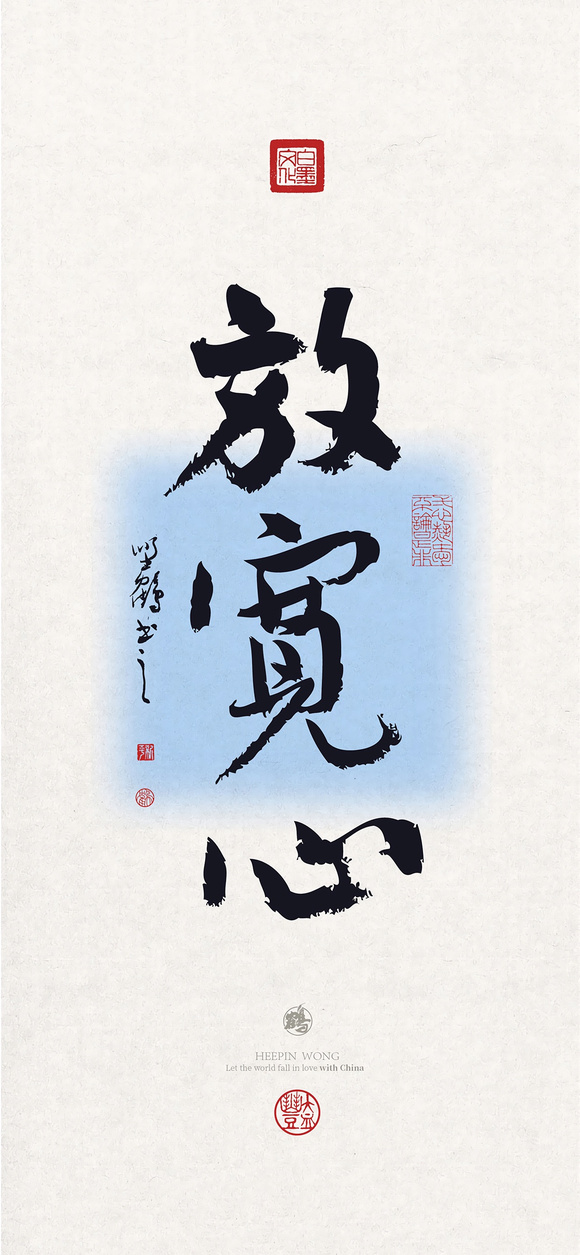 白墨
文化
放
寬
心
鶴書之
鶴
HEEPIN WONG
Let the world fall in love with China